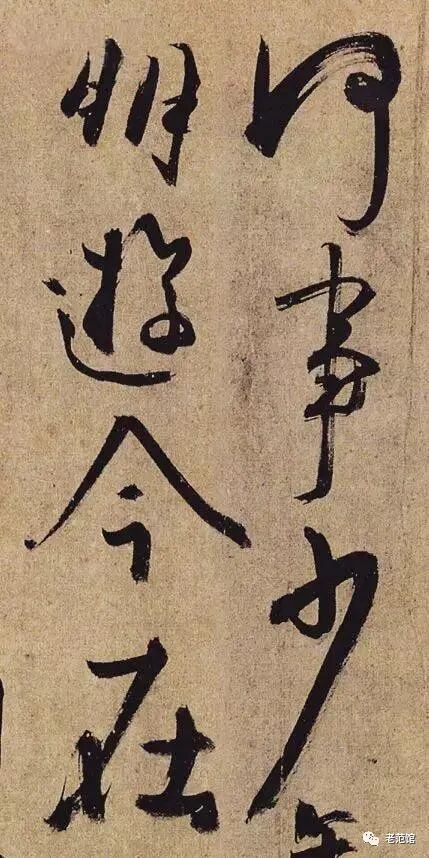 何事少
明遊今在
老范馆